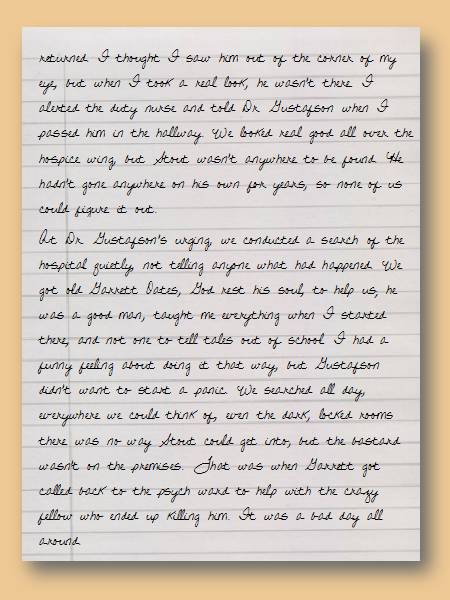 returned. I thought I saw him out of the corner of my
eye, but when I took a real look, he wasn't there. I
alerted the duty nurse and told Dr. Gustafson when I
passed him in the hallway. We looked real good all over the
hospice wing, but Stout wasn't anywhere to be found. He
hadn't gone anywhere on his own for years, so none of us
could figure it out.
At Dr. Gustafson's urging, we conducted a search of the
hospital quietly, not telling anyone what had happened. We
got old Garrett Oates, God rest his soul, to help us, he
was a good man, taught me everything when I started
there, and not one to tell tales out of school. I had a
funny feeling about doing it that way, but Gustafson
didn't want to start a panic. We searched all day,
everywhere we could think of, even the dark, locked rooms
there was no way Stout could get into, but the bastard
wasn't on the premises. That was when Garrett got
called back to the psych ward to help with the crazy
fellow who ended up killing him. It was a bad day all
around.